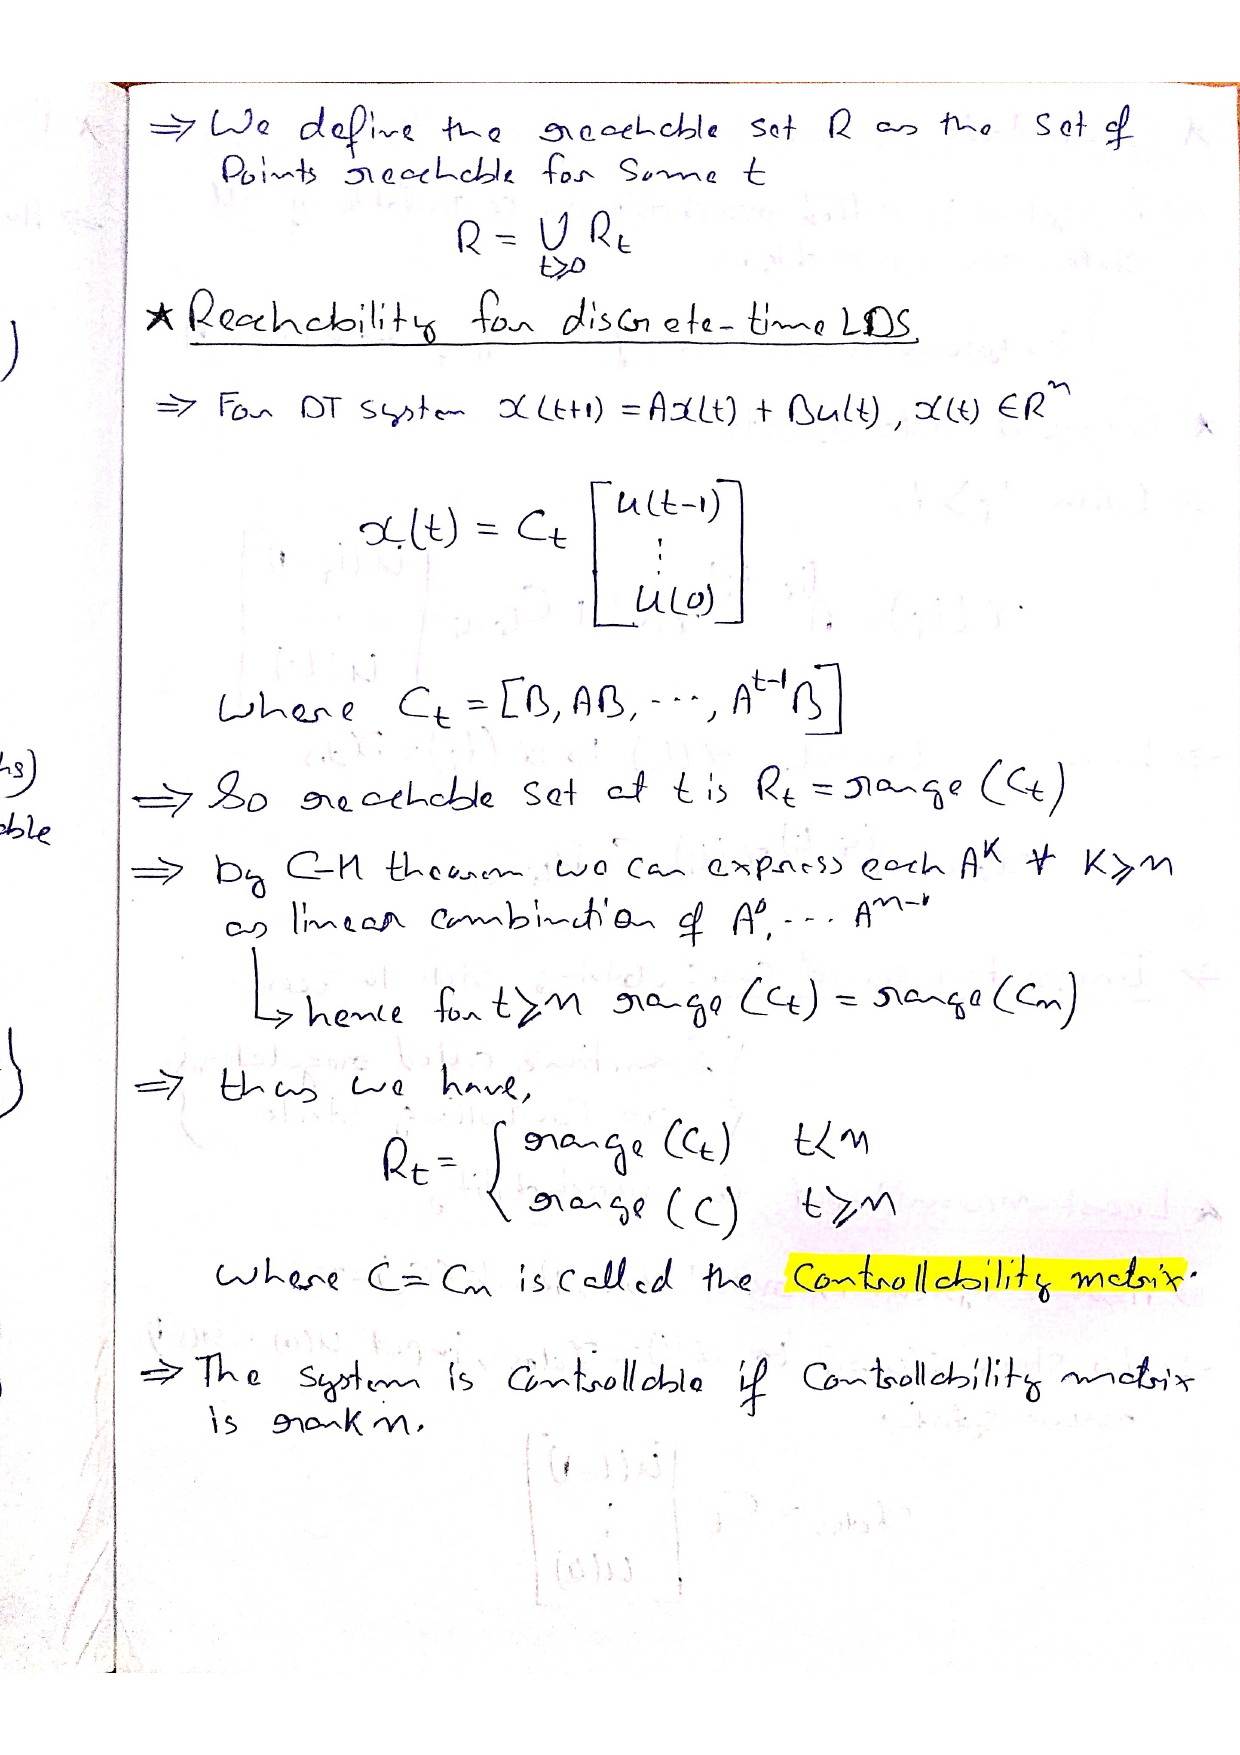 ⇒ We define the reachable set R as the set of
Points reachable for some t
R = ∪ R_t
t≥0
★ Reachability for discrete-time LDS.
⇒ For DT system x(t+1) = Ax(t) + Bu(t), x(t) ∈ R^n
x(t) = C_t [u(t-1)
⋮
u(0)]
where C_t = [B, AB, ---, A^{t-1}B]
⇒ So reachable set at t is R_t = range (C_t)
⇒ by C-H theorem we can express each A^K ∀ K≥n
as linear combination of A^0, --- A^{n-1}
↳ hence for t≥n range (C_t) = range (C_n)
⇒ thus we have,
R_t = { range (C_t) t<n
range (C) t≥n
where C = C_n is called the Controllability matrix.
⇒ The system is Controllable if Controllability matrix
is rank n.
)
hs)
able